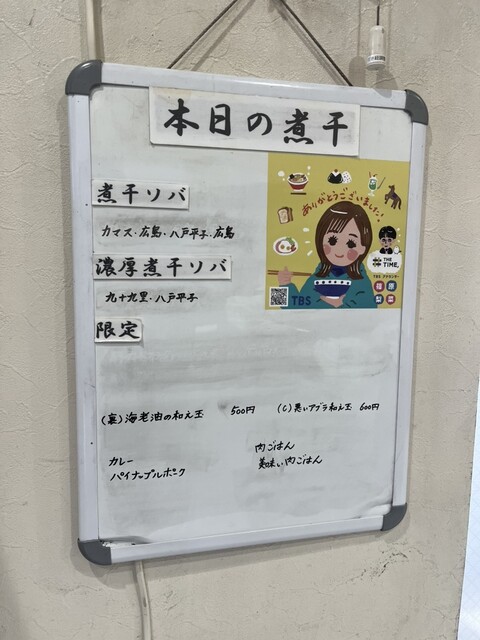 本日の煮干
煮干ソバ
カマス・広島・八戸平子・広島
濃厚煮干ソバ
九十九里・八戸平子
限定
ありがとうございました!
THE TIME,
TBS アナウンサー
篠原
梨菜
TBS
(裏)海老油の和え玉 500円 (C)悪いアブラ和え玉 600円
カレー
パイナップルポーク
肉ごはん
美味い肉ごはん